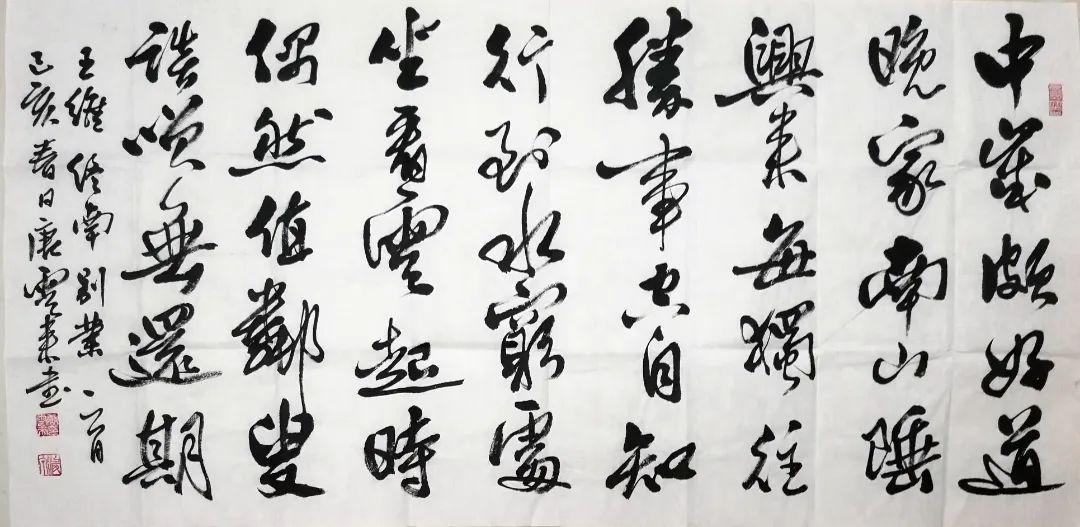 中歲頗好道
晚家南山陲
興来每獨往
勝事空自知
行到水窮處
坐看雲起時
偶然值鄰叟
談咲無還期
王維終南別業一首
己亥春日康雲来書